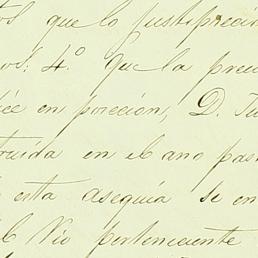 que lo justiprecia
4.º Que la pre
en posesion, D.
truida en el año pas
esta asequia se en
el Rio perteneciente